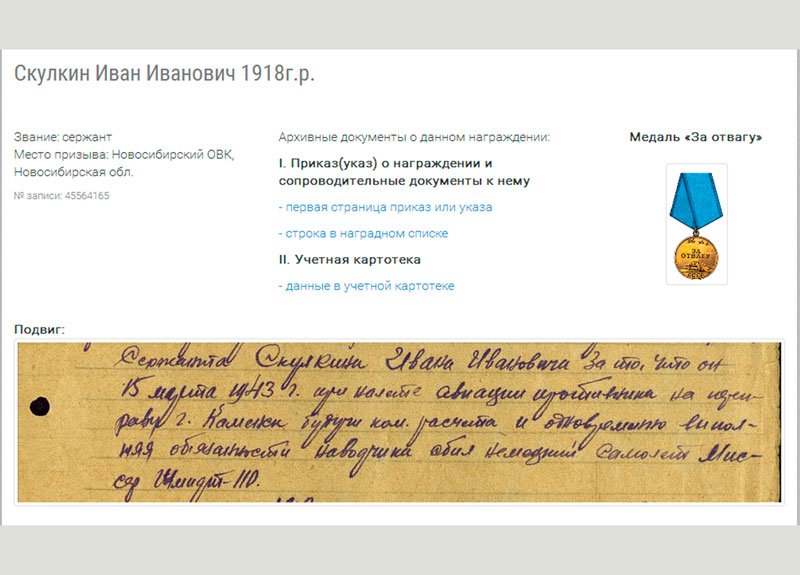 Скулкин Иван Иванович 1918г.р.
Звание: сержант
Место призыва: Новосибирский ОВК,
Новосибирская обл.
№ записи: 45564165
Архивные документы о данном награждении:
I. Приказ(указ) о награждении и
сопроводительные документы к нему
- первая страница приказ или указа
- строка в наградном списке
II. Учетная картотека
- данные в учетной картотеке
Медаль «За отвагу»
ЗА
ОТВАГУ
СССР
Подвиг:
Сержанта Скулкина Ивана Ивановича За то, что он
15 марта 1943 г. при налете авиации противника на пере-
праву г. Каменки будучи ком. расчета и одновременно выпол-
няя обязанности наводчика сбил немецкий самолет Мис-
сер Шмидт-110.